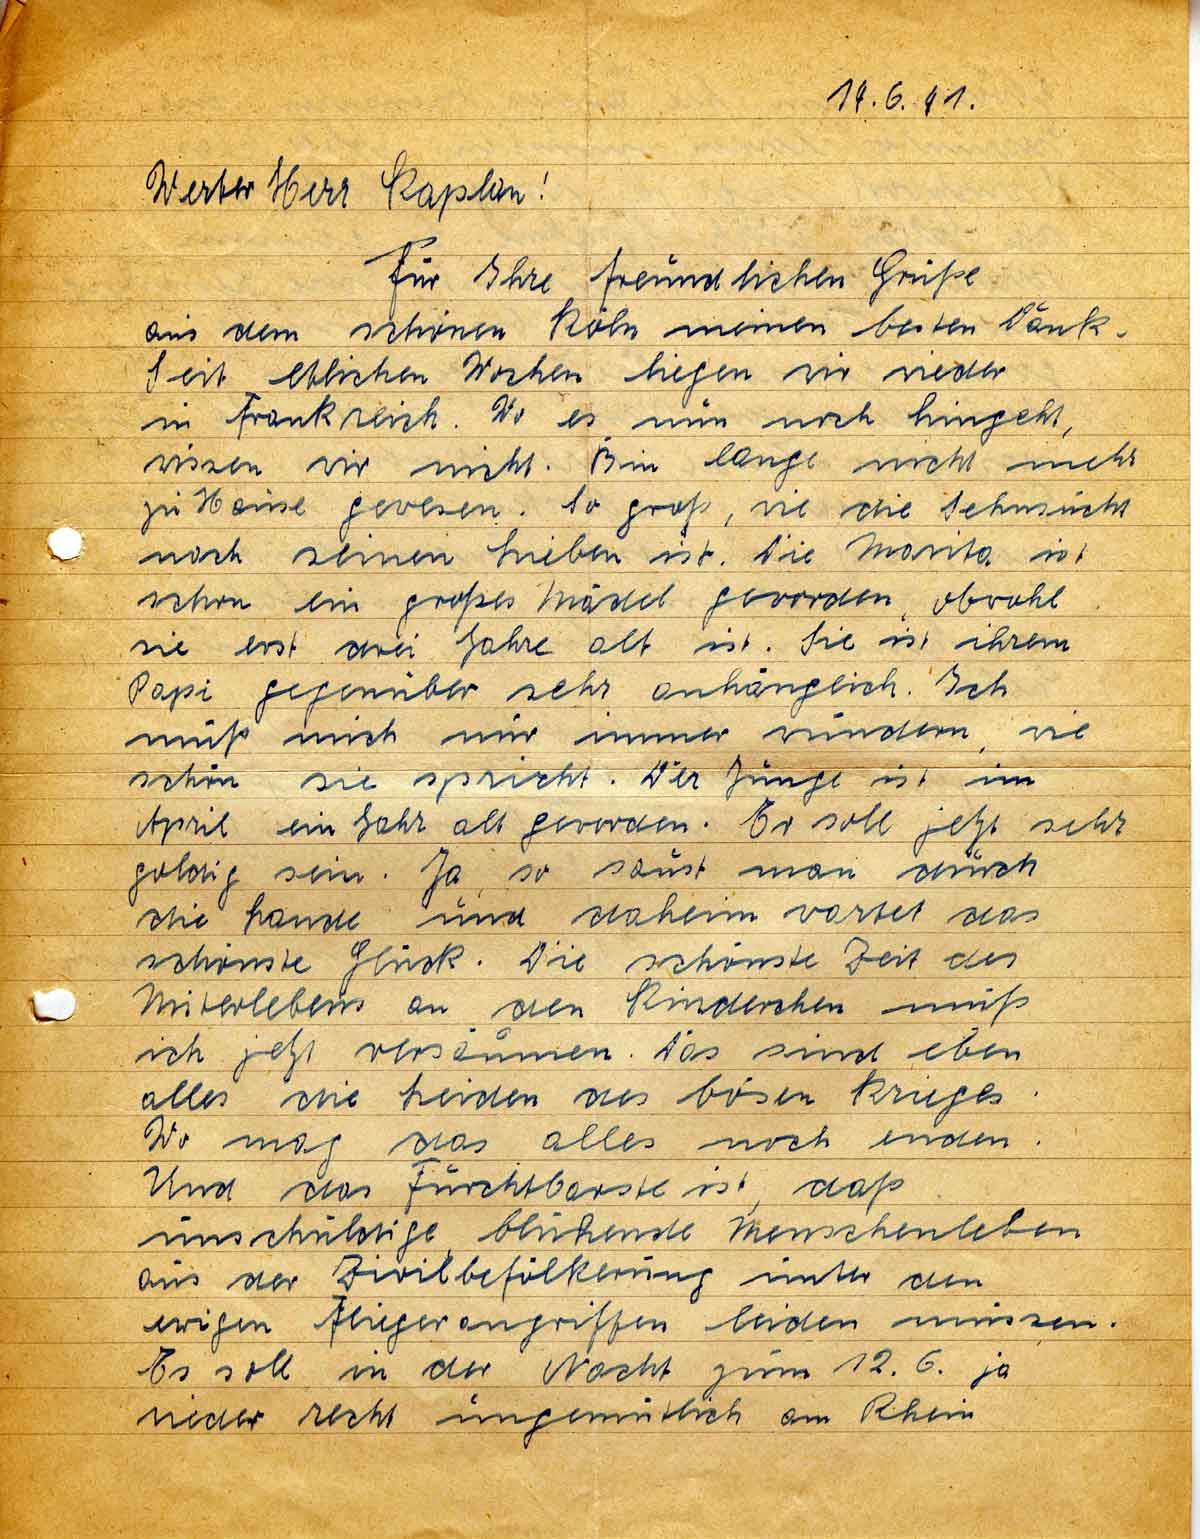 14.6.41.
Werter Herr Kaplan!
Für Ihre freundlichen Grüße
aus dem schönen Köln meinen besten Dank.
Seit etlichen Wochen liegen wir wieder
in Frankreich. Wo es nun noch hingeht,
wissen wir nicht. Bin lange nicht mehr
zu Hause gewesen. So groß, wie die Sehnsucht
nach seinen Lieben ist. Die Marita ist
schon ein großes Mädel geworden, obwohl
sie erst drei Jahre alt ist. Sie ist ihrem
Papi gegenüber sehr anhänglich. Ich
muß mich nur immer wundern, wie
schön sie spricht. Der Junge ist im
April ein Jahr alt geworden. Er soll jetzt sehr
goldig sein. Ja, so saust man durch
die Lande und daheim wartet das
schönste Glück. Die schönste Zeit des
Miterlebens an den Kinderchen muß
ich jetzt versäumen. Das sind eben
alles die Leiden des bösen Krieges.
Wo mag das alles noch enden.
Und das Furchtbarste ist, daß
unschuldige, blühende Menschenleben
aus der Zivilbefölkerung unter den
ewigen Fliegerangriffen leiden müssen.
Es soll in der Nacht zum 12.6. ja
wieder recht ungemütlich am Rhein